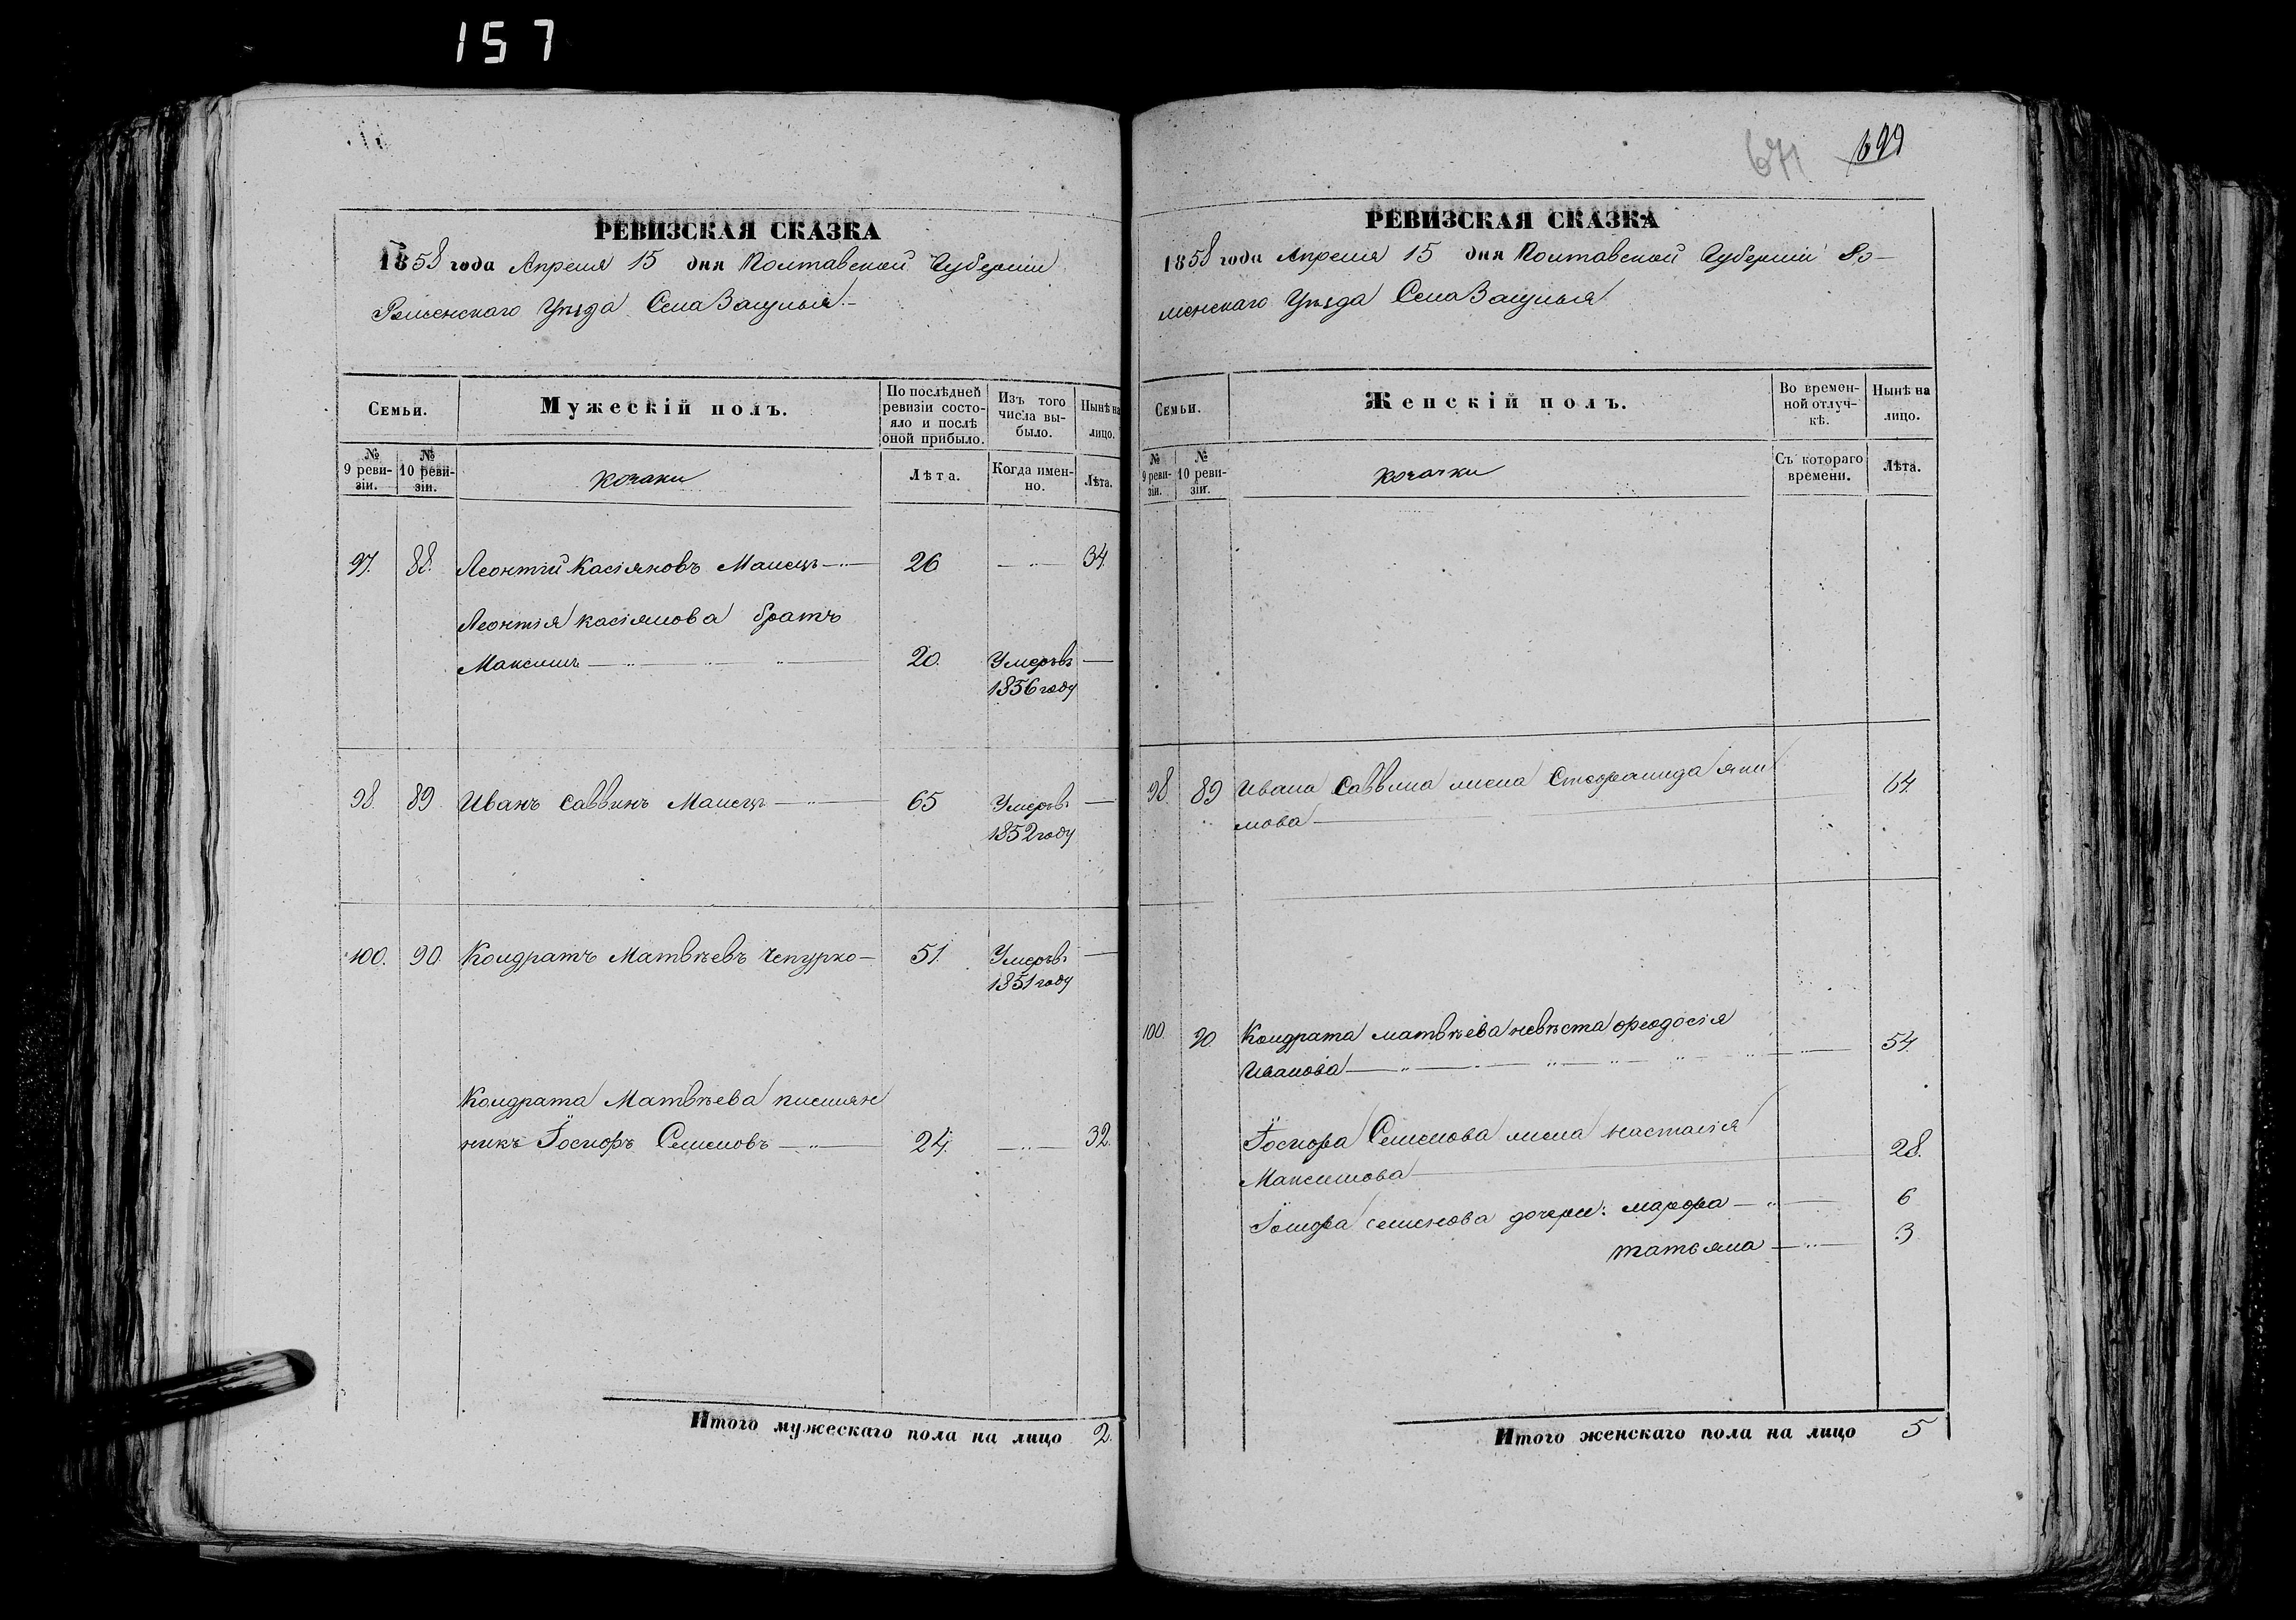 157
РЕВИЗСКАЯ СКАЗКА
1858 года Апреля 15 дня Полтавской Губерніи
Роменскаго Уѣзда Села
Семьи.
Мужескій полъ.
По послѣдней ревизіи состояло и послѣ оной прибыло.
Изъ того числа выбыло.
Нынѣ на лицо.
№ 9 ревизіи.
№ 10 ревизіи.
козаки
Лѣта.
Когда именно.
Лѣта.
97. 88. Леонтій Касіяновъ 26 34.
Леонтія касіянова братъ
Максимъ 20. Умеръ въ
1856 году
98. 89 Иванъ Саввинъ 65 Умеръ въ
1852 году
100. 90. Кондратъ Матвѣевъ Чепурко 51. Умеръ въ
1851 году
Кондрата Матвѣева племян
никъ Іосифъ Семеновъ 24. 32.
Итого мужескаго пола на лицо 2.
671 699
РЕВИЗСКАЯ СКАЗКА
1858 года Апреля 15 дня Полтавской Губерніи Ро-
менскаго Уѣзда Села
Семьи.
Женскій полъ.
Во временной отлучкѣ.
Нынѣ на лицо.
№ 9 ревизіи.
№ 10 ревизіи.
козачки
Съ котораго времени.
Лѣта.
98. 89 Ивана Саввина жена Стефанида яки
мова 64.
100. 90. Кондрата матвѣева невѣста феодосія
Иванова 54.
Іосифа Семенова жена настасія
Максимова 28.
Іосифа семенова дочери: марфа 6
татьяна 3
Итого женскаго пола на лицо 5